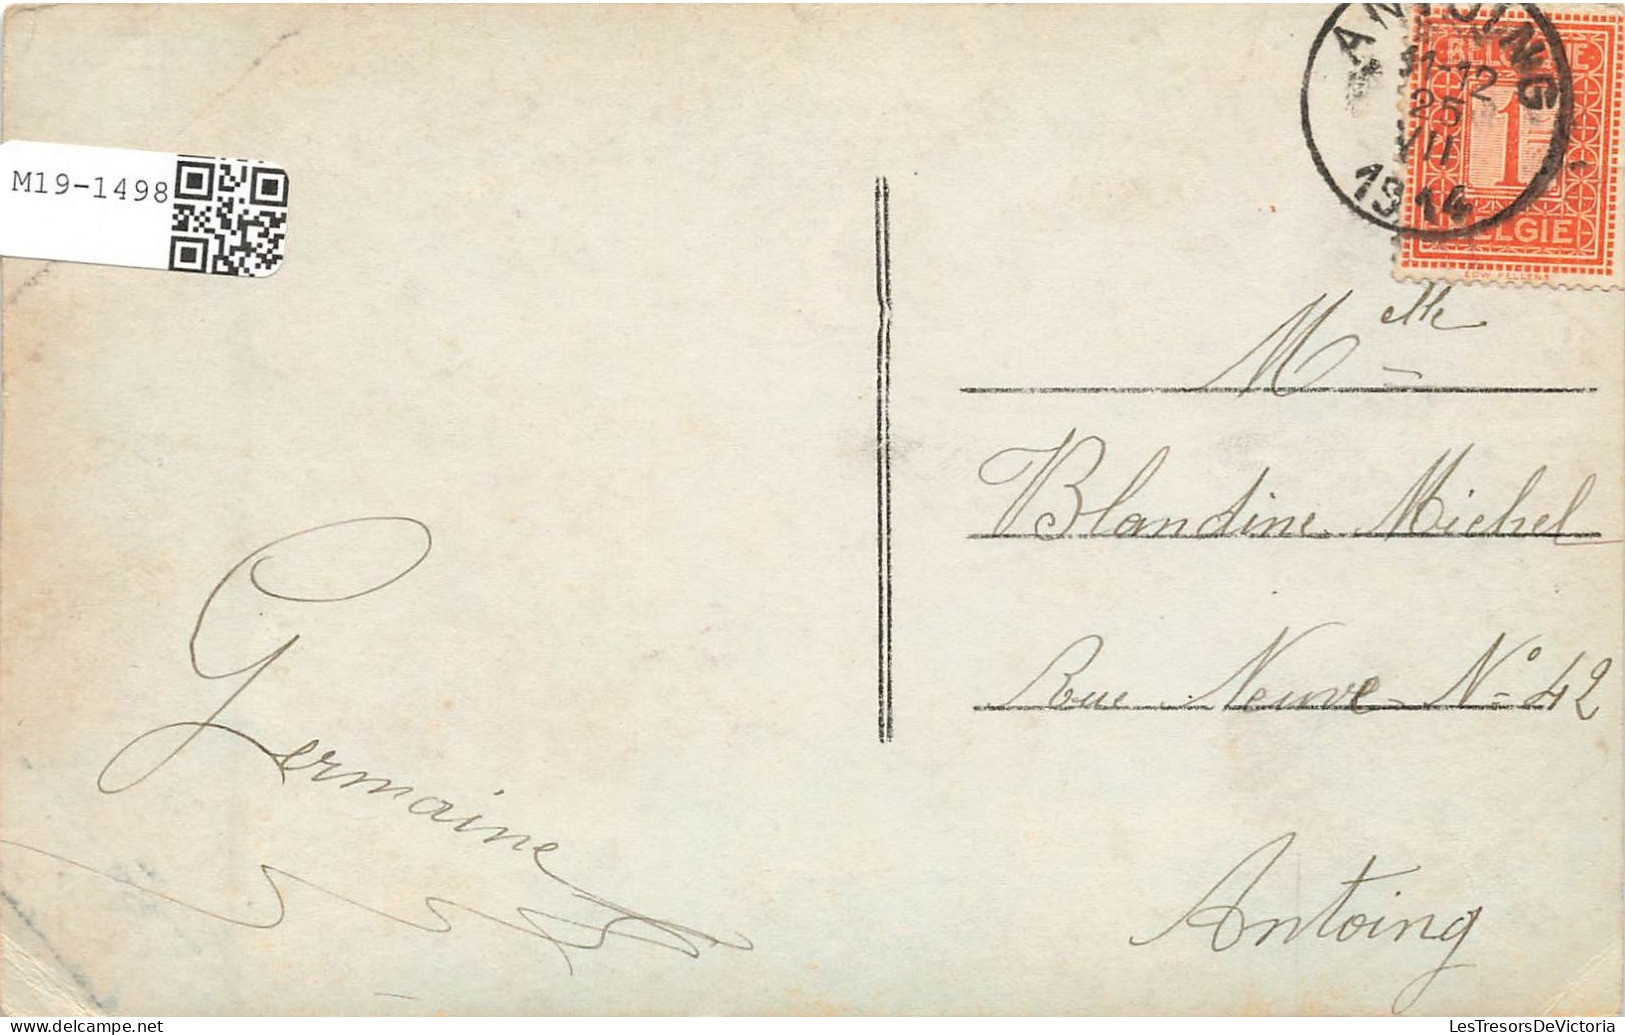 M19-1498
ANTOING
11-12
25
VII
1914
BELGIQUE
1
BELGIE
EDW PELLENS
Melle
Blandine Michel
Rue Neuve No 42
Antoing
Germaine
delcampe.net
LesTresorsDeVictoria